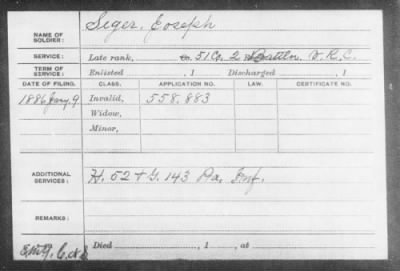 NAME OF SOLDIER: Seger, Eoseph
SERVICE: Late rank, Co. 51 Co. 2 Battln. V. R. C.
TERM OF SERVICE: Enlisted , 1 Discharged , 1
DATE OF FILING. CLASS. APPLICATION NO. LAW. CERTIFICATE NO.
1886 Jany. 9. Invalid, 558.883
Widow,
Minor,
ADDITIONAL SERVICES: H. 52 + G. 143 Pa. Inf.
REMARKS:
Died , 1 , at